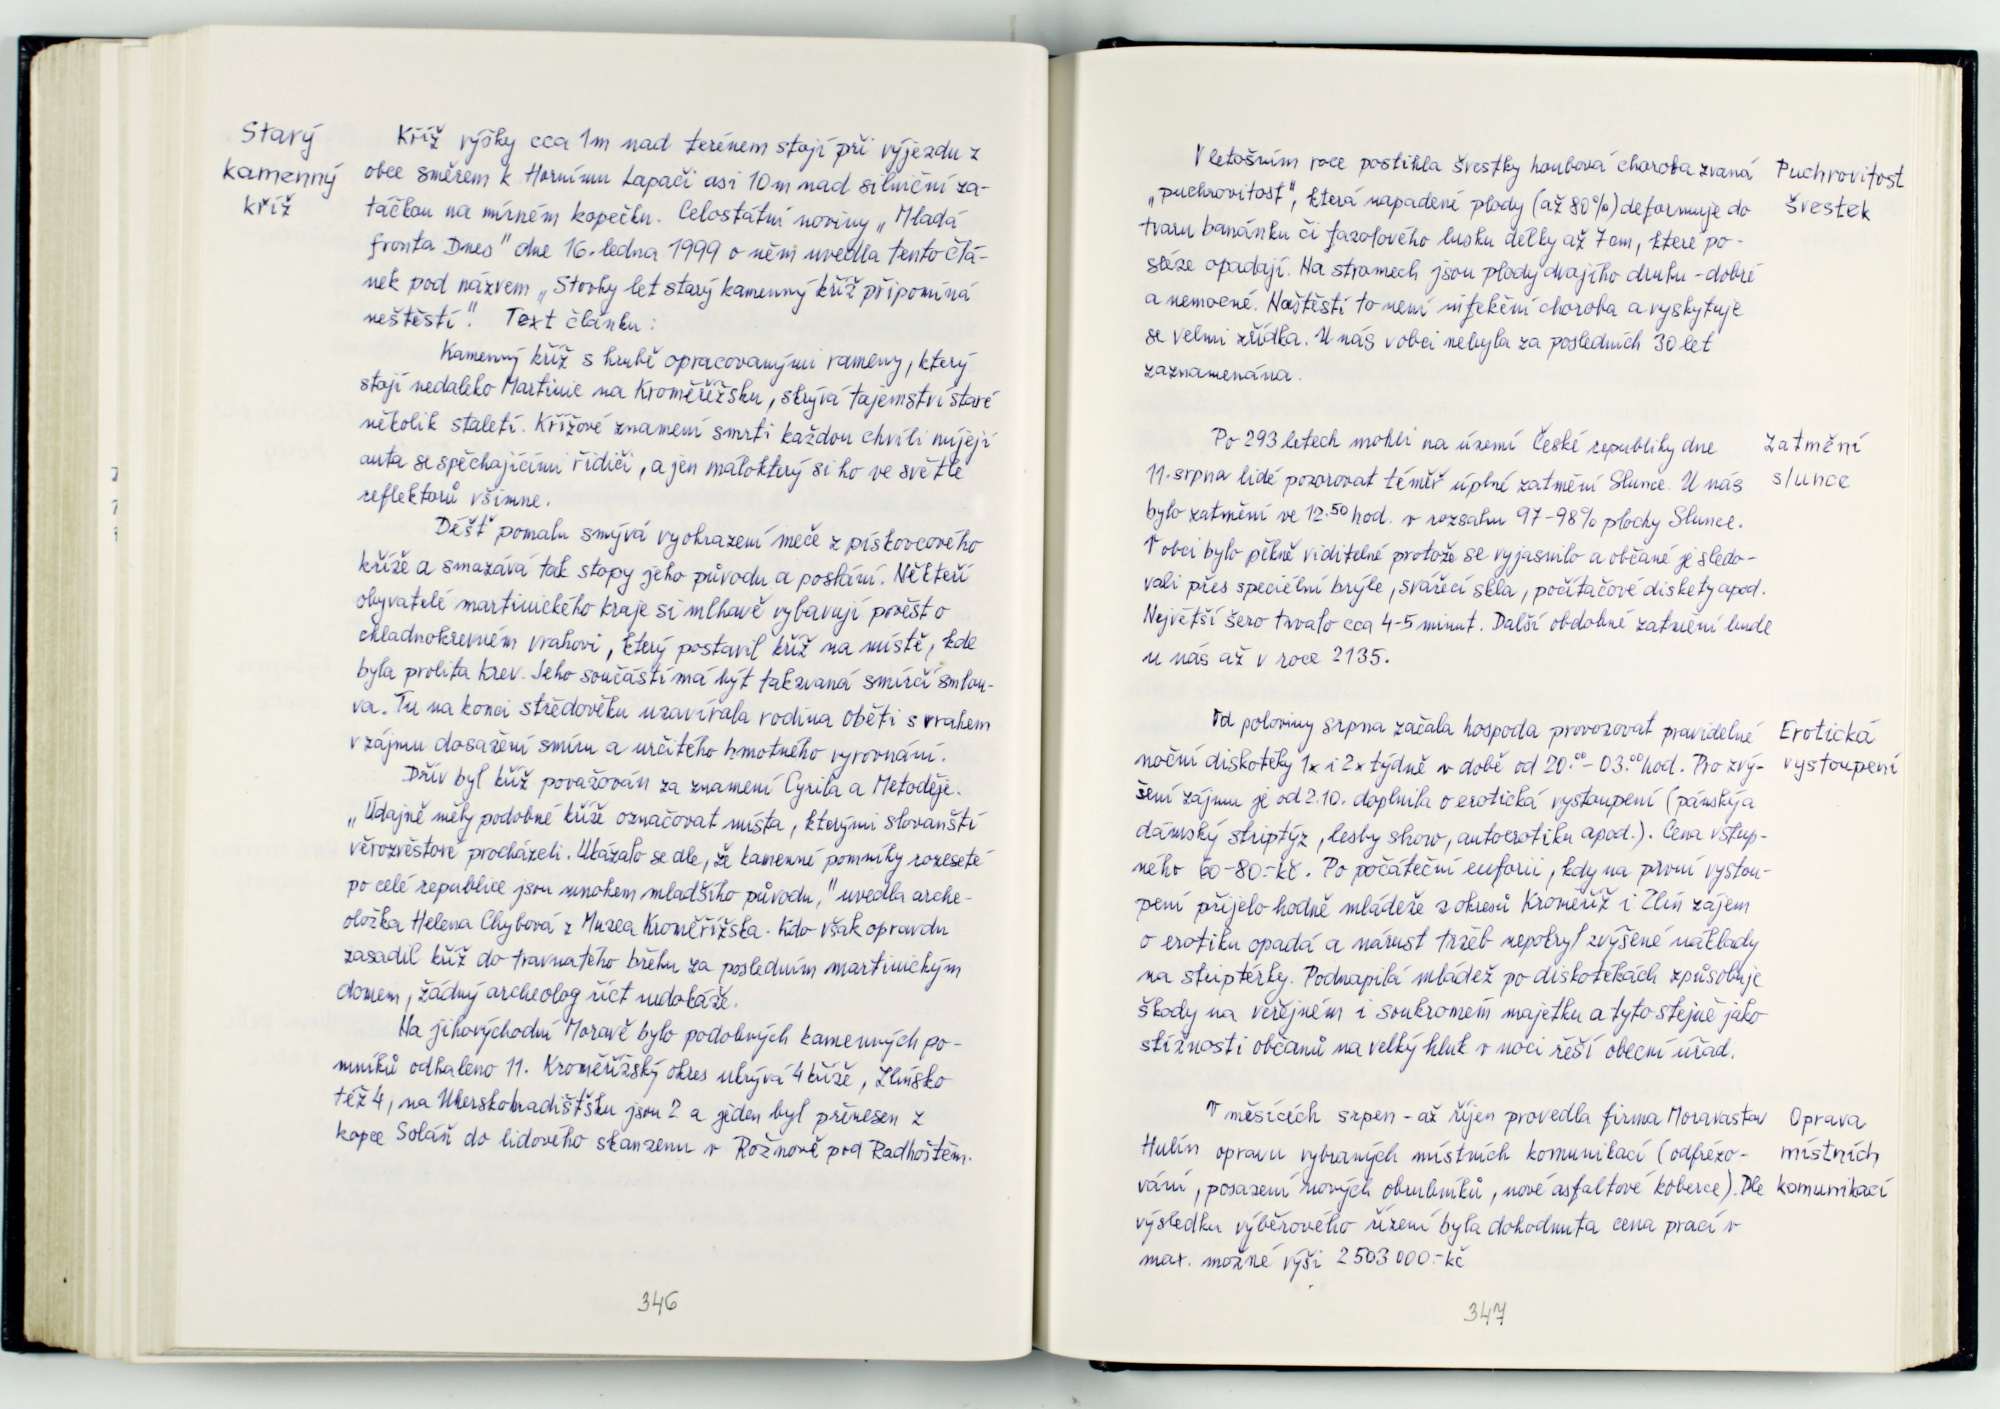 Starý
kamenný
kříž
Kříž výšky cca 1m nad terénem stojí při výjezdu z
obce směrem k Hornímu Lapači asi 10m nad silniční za-
táčkou na mírném kopečku. Celostátní noviny „Mladá
fronta Dnes" dne 16. ledna 1999 o něm uvedla tento člá-
nek pod názvem „Stovky let starý kamenný kříž připomíná
neštěstí". Text článku:
Kamenný kříž s hrubě opracovanými rameny, který
stojí nedaleko Martinic na Kroměřížsku, skrývá tajemství staré
několik staletí. Křížové znamení smrti každou chvíli míjejí
auta se spěchajícími řidiči, a jen málokterý si ho ve světle
reflektorů všimne.
Déšť pomalu smývá vyobrazení meče z pískovcového
kříže a smazává tak stopy jeho původu a poslání. Někteří
obyvatelé martinického kraje si mlhavě vybavují pověst o
chladnokrevném vrahovi, který postavil kříž na místě, kde
byla prolita krev. Jeho součástí má být takzvaná smírčí smlou-
va. Tu na konci středověku uzavírala rodina oběti s vrahem
v zájmu dosažení smíru a určitého hmotného vyrovnání.
Dřív byl kříž považován za znamení Cyrila a Metoděje.
„Údajně měly podobné kříže označovat místa, kterými slovanští
věrozvěstové procházeli. Ukázalo se dle, že kamenné pomníky rozeseté
po celé republice jsou mnohem mladšího původu," uvedla arche-
oložka Helena Chybová z Muzea Kroměřížska. Kdo však opravdu
zasadil kříž do travnatého břehu za posledním martinickým
domem, žádný archeolog říct nedokáže.
Na jihovýchodní Moravě bylo podobných kamenných po-
mníků odhaleno 11. Kroměřížský okres ukrývá 4 kříže, Zlínsko
též 4, na Uherskohradišťsku jsou 2 a jeden byl přenesen z
kopce Soláň do lidového skanzenu v Rožnově pod Radhoštěm.
346
V letošním roce postihla švestky houbová choroba zvaná
„puchrovitost", která napadené plody (až 80%) deformuje do
tvaru banánku či fazolového lusku délky až 7cm, které po-
sléze opadají. Na stromech jsou plody dvojího druhu - dobré
a nemocné. Naštěstí to není infekční choroba a vyskytuje
se velmi zřídka. U nás v obci nebyla za posledních 30 let
zaznamenána.
Puchrovitost
švestek
Po 293 letech mohli na území České republiky dne
11. srpna lidé pozorovat téměř úplné zatmění Slunce. U nás
bylo zatmění ve 12.50 hod. v rozsahu 97-98% plochy Slunce.
V obci bylo pěkně viditelné protože se vyjasnilo a občané je sledo-
vali přes speciélní brýle, svářecí skla, počítačové diskety apod.
Největší šero trvalo cca 4-5 minut. Další obdobné zatmění bude
u nás až v roce 2135.
Zatmění
slunce
Od poloviny srpna začala hospoda provozovat pravidelné
noční diskotéky 1x i 2x týdně v době od 20.00 - 03.00 hod. Pro zvý-
šení zájmu je od 2.10. doplnila o erotická vystoupení (pánský a
dámský striptýz, lesby show, autoerotiku apod.). Cena vstup-
ného 60-80.-kč. Po počáteční euforii, kdy na první vystou-
pení přijelo hodně mládeže z okresů Kroměříž i Zlín zájem
o erotiku opadá a nárust tržeb nepokryl zvýšené náklady
na striptérky. Podnapilá mládež po diskotékách způsobuje
škody na veřejném i soukromém majetku a tyto stejně jako
stížnosti občanů na velký hluk v noci řeší obecní úřad.
Erotická
vystoupení
V měsících srpen - až říjen provedla firma Moravastav
Hulín opravu vybraných místních komunikací (odfrézo-
vání, posazení nových obrubníků, nové asfaltové koberce). Dle
výsledku výběrového řízení byla dohodnuta cena prací v
max. možné výši 2 503 000.-kč
Oprava
místních
komunikací
347